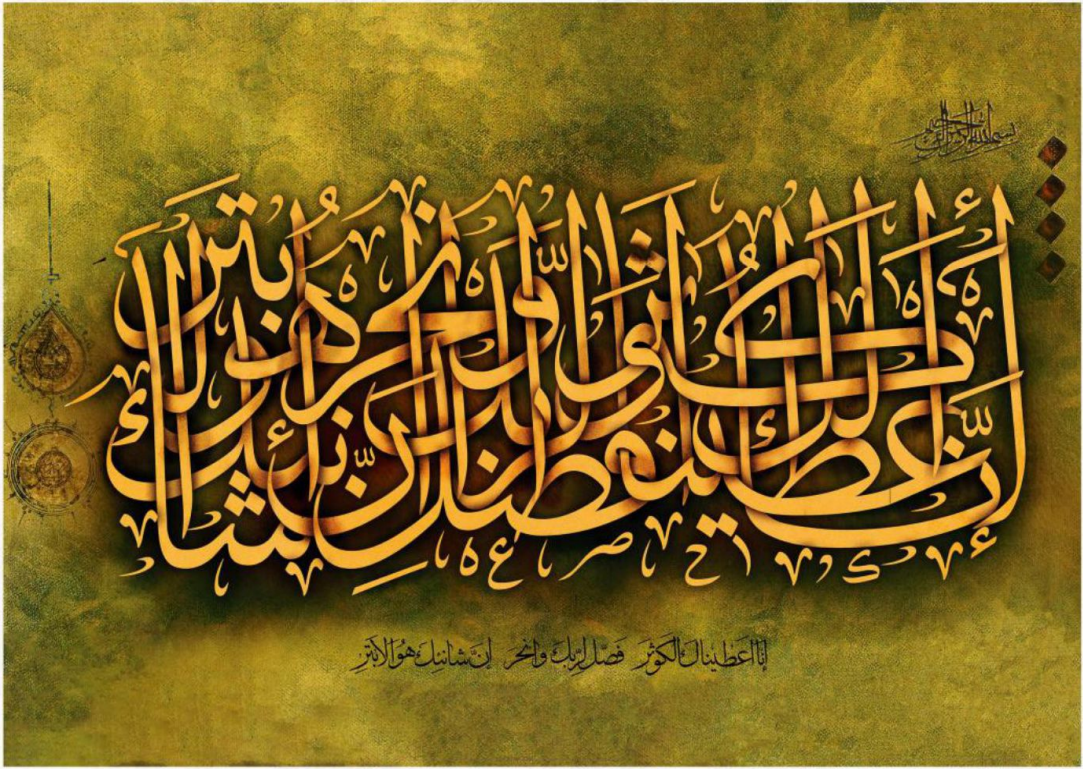 بسم الله الرحمن الرحيم
إنا أعطيناك الكوثر فصل لربك وانحر إن شانئك هو الأبتر
إنا اعطيناك الكوثر فصل لربك وانحر إن شانئك هو الابتر